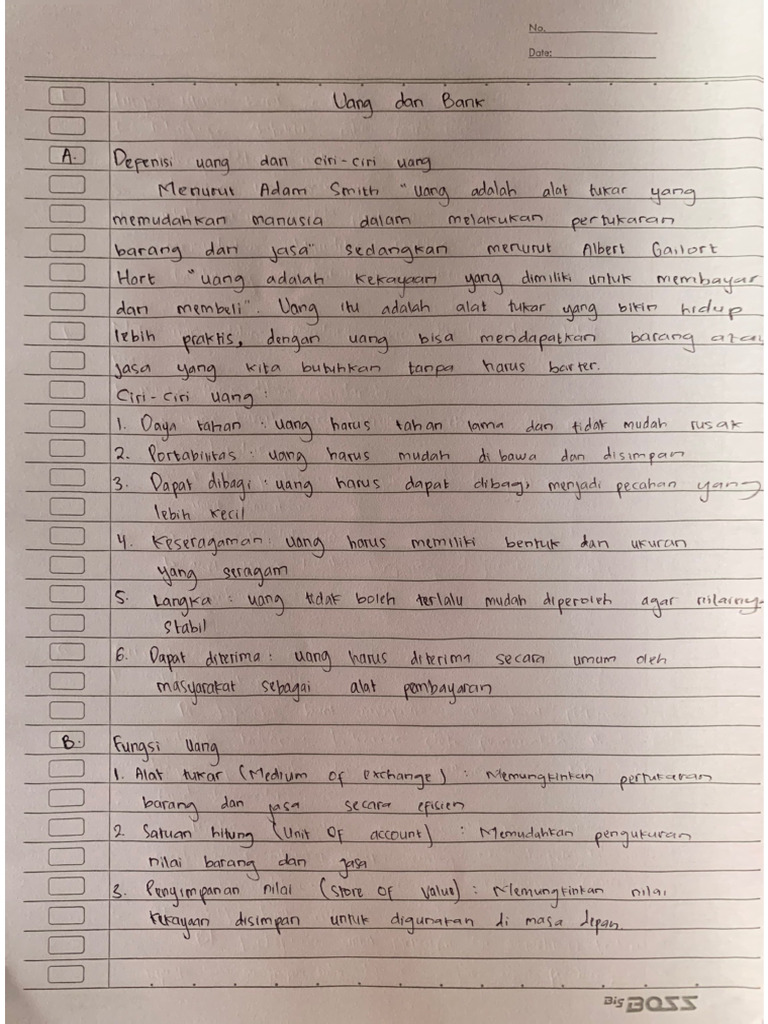 No.
Date:
Uang dan Bank
A. Depenisi uang dan ciri-ciri uang
Menurut Adam Smith "Uang adalah alat tukar yang
memudahkan manusia dalam melakukan pertukaran
barang dan jasa" sedangkan menurut Albert Gailort
Hort "uang adalah kekayaan yang dimiliki untuk membayar
dan membeli". Uang itu adalah alat tukar yang bikin hidup
lebih praktis, dengan uang bisa mendapatkan barang atau
jasa yang kita butuhkan tanpa harus barter.
Ciri-Ciri uang :
1. Daya tahan : uang harus tahan lama dan tidak mudah rusak
2. Portabilitas : uang harus mudah di bawa dan disimpan
3. Dapat dibagi : uang harus dapat dibagi menjadi pecahan yang
lebih kecil
4. Keseragaman : uang harus memiliki bentuk dan ukuran
yang seragam
5. Langka : uang tidak boleh terlalu mudah diperoleh agar nilainya
stabil
6. Dapat diterima : uang harus diterima secara umum oleh
masyarakat sebagai alat pembayaran
B. Fungsi Uang
1. Alat tukar (Medium of exchange) : Memungkinkan pertukaran
barang dan jasa secara efisien
2. Satuan hitung (Unit Of account) : Memudahkan pengukuran
nilai barang dan jasa
3. Penyimpanan nilai (Store of value) : Memungkinkan nilai
kekayaan disimpan untuk digunakan di masa depan.
Big BOSS